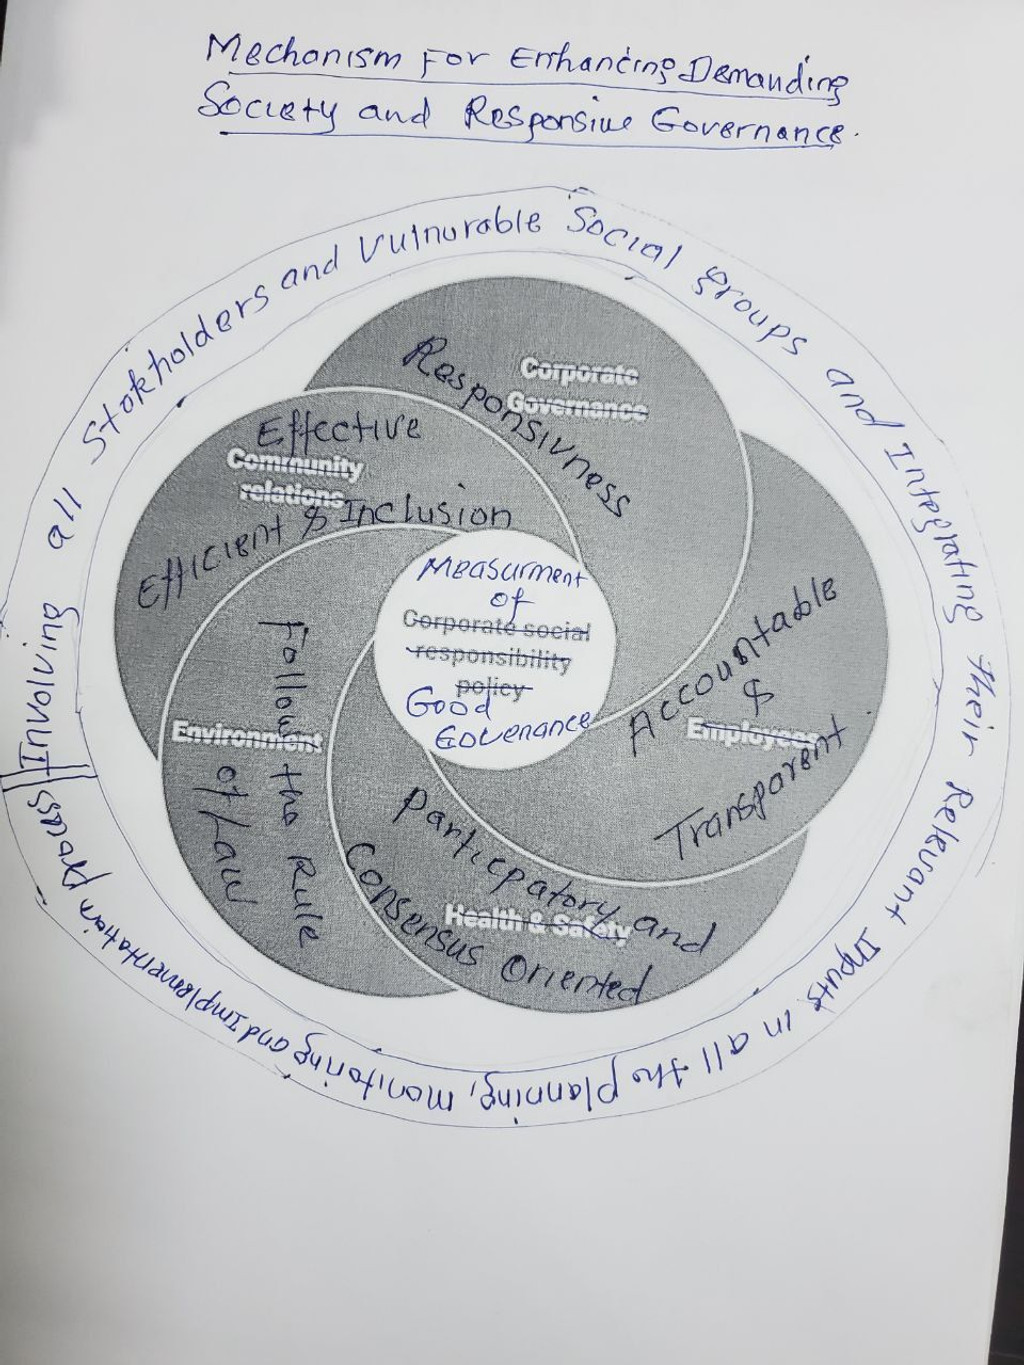 Mechanism For Enhancing Demanding
Society and Responsive Governance.
Involving all Stokholders and Vulnurable Social groups and Integrating their Relevant Inputs in all the planning, monitoring and implementation process
Responsivness
Corporate
Governance
Effective
Community
relations
Efficient & Inclusion
Measurment
of
Corporate social
responsibility
policy
Good
Govenance
Accountable
&
Employees
Transparent
Follow the Rule
of Law
Environment
Participatory and
Health & Safety
Consensus Oriented